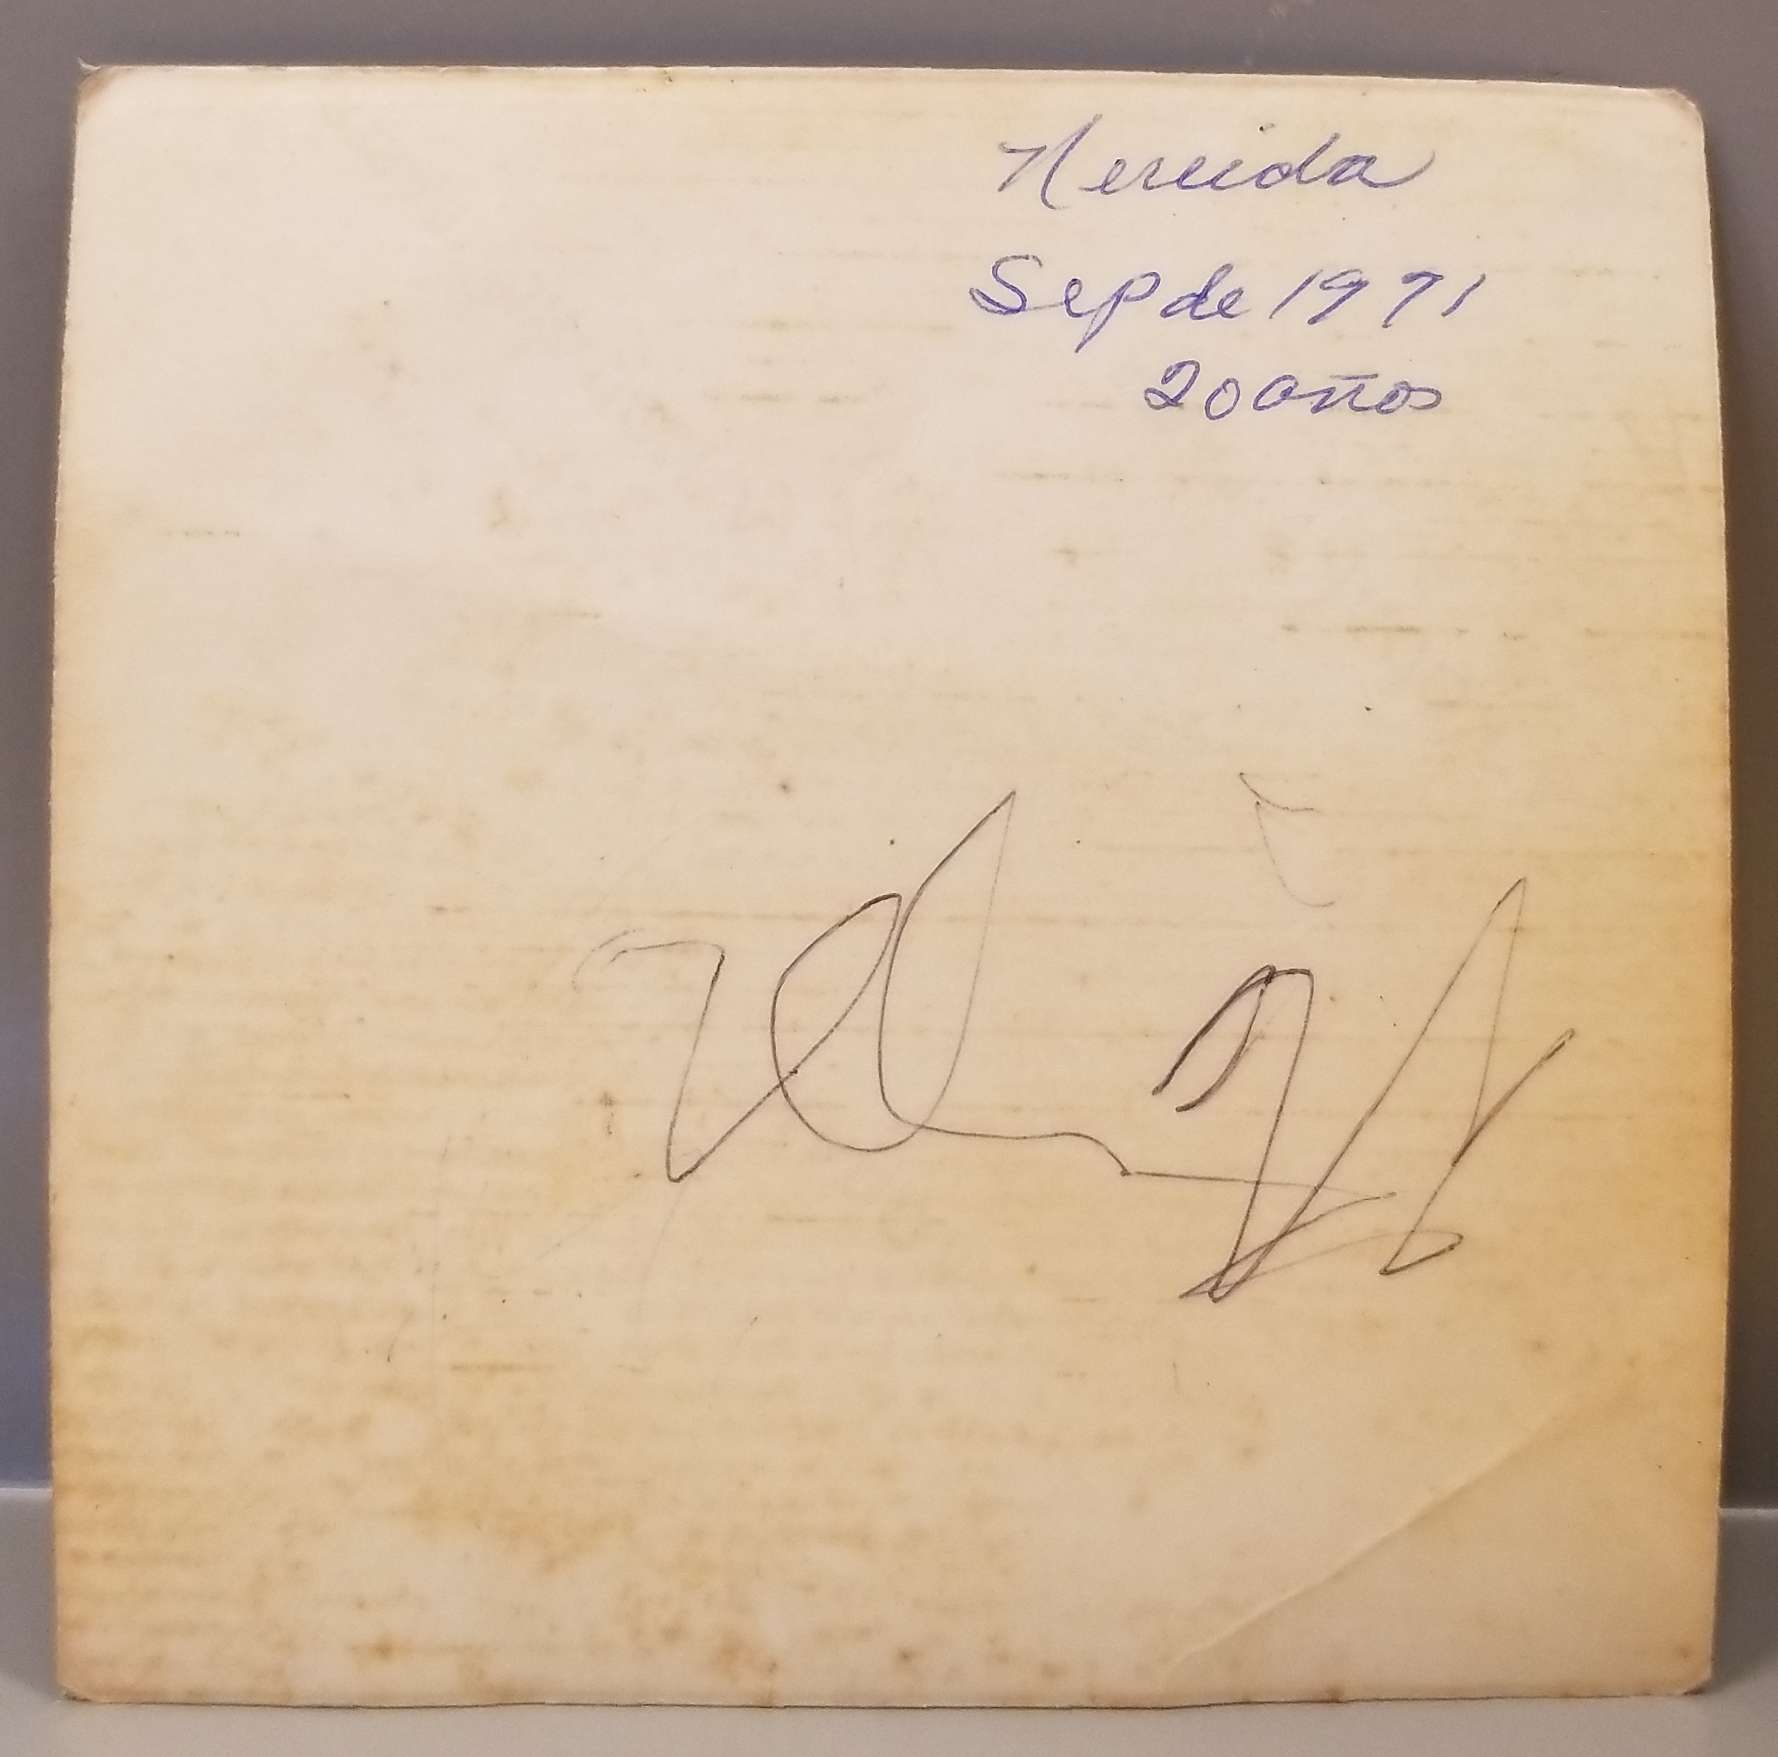 Nereida
Sep de 1971
20 años